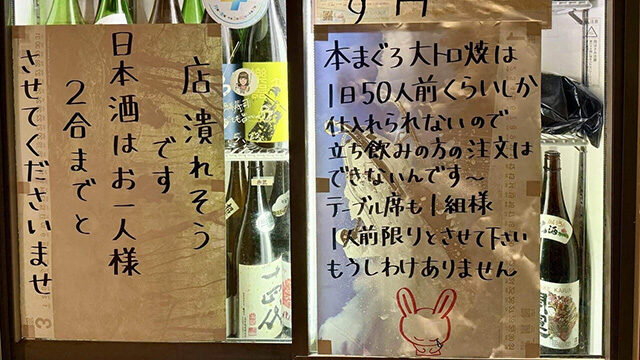 店潰れそう
です
日本酒はお一人様
2合までと
させてくださいませ
す円
本まぐろ大トロ焼は
1日50人前くらいしか
仕入れられないので
立ち飲みの方の注文は
できないんです〜
テーブル席も1組様
1人前限りとさせて下さい
もうしわけありません
十四代